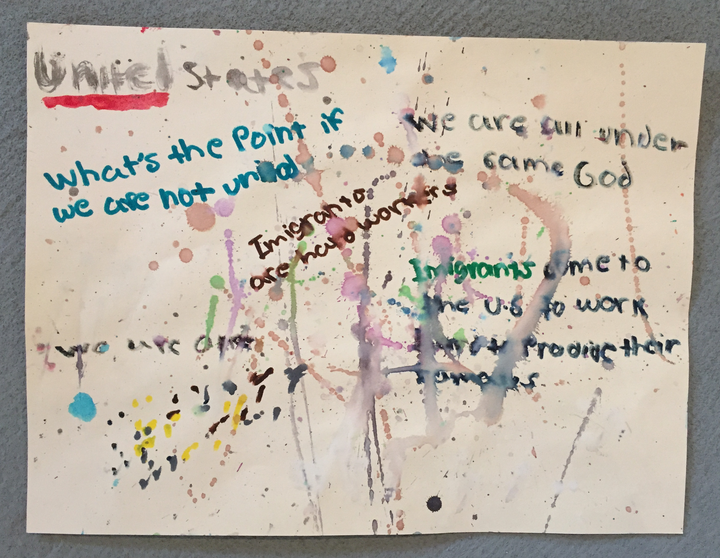 United States
What's the Point if
we are not united
we are all under
the same God
Imigrants
are hard workers
Imigrants come to
the U.S to work
their
we are